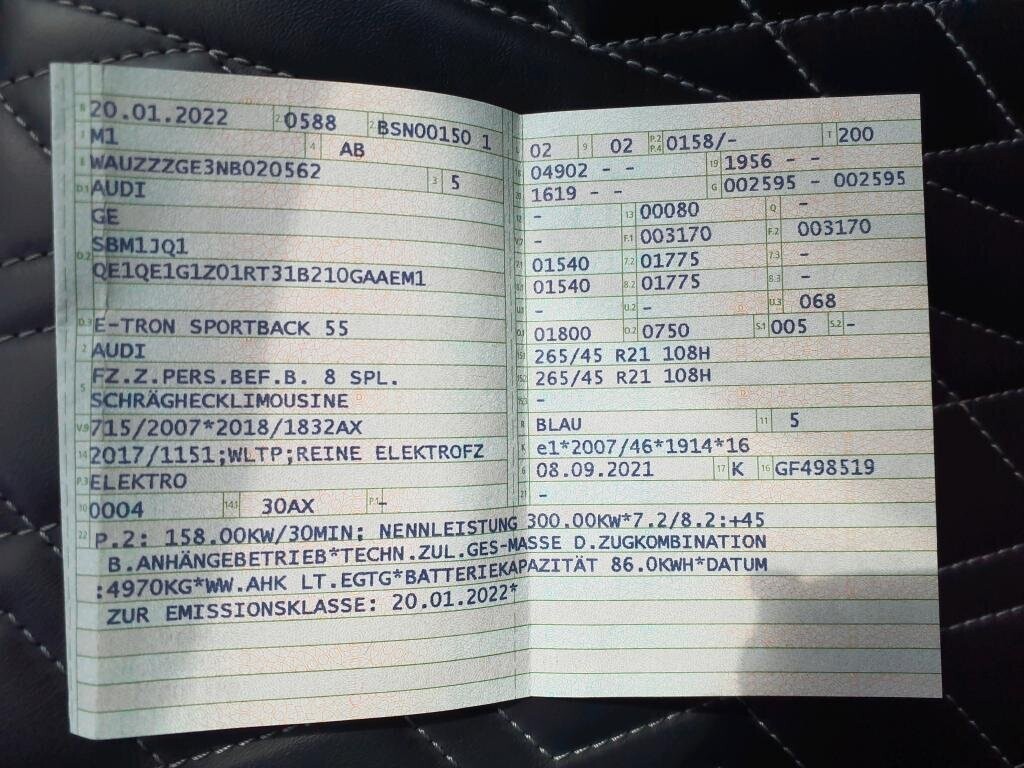 B 20.01.2022 2.1 0588 2.2 BSN00150 1
J M1 4 AB
E WAUZZZGE3NB020562 3 5
D.1 AUDI
GE
D.2 SBM1JQ1
QE1QE1G1Z01RT31B210GAAEM1
D.3 E-TRON SPORTBACK 55
2 AUDI
5 FZ.Z.PERS.BEF.B. 8 SPL.
SCHRÄGHECKLIMOUSINE
V.9 715/2007*2018/1832AX
14 2017/1151;WLTP;REINE ELEKTROFZ
P.3 ELEKTRO
10 0004 14.1 30AX P.1 -
02 9 02 P.2 P.4 0158/- T 200
18 04902 - - 19 1956 - -
20 1619 - - G 002595 - 002595
12 - 13 00080 Q -
V.7 - F.1 003170 F.2 003170
7.1 01540 7.2 01775 7.3 -
8.1 01540 8.2 01775 8.3 -
U.1 - U.2 - U.3 068
O.1 01800 O.2 0750 S.1 005 S.2 -
15.1 265/45 R21 108H
15.2 265/45 R21 108H
15.3 -
R BLAU 11 5
K e1*2007/46*1914*16
6 08.09.2021 17 K 16 GF498519
21 -
22 P.2: 158.00KW/30MIN; NENNLEISTUNG 300.00KW*7.2/8.2:+45
B.ANHÄNGEBETRIEB*TECHN.ZUL.GES-MASSE D.ZUGKOMBINATION
:4970KG*WW.AHK LT.EGTG*BATTERIEKAPAZITÄT 86.0KWH*DATUM
ZUR EMISSIONSKLASSE: 20.01.2022*